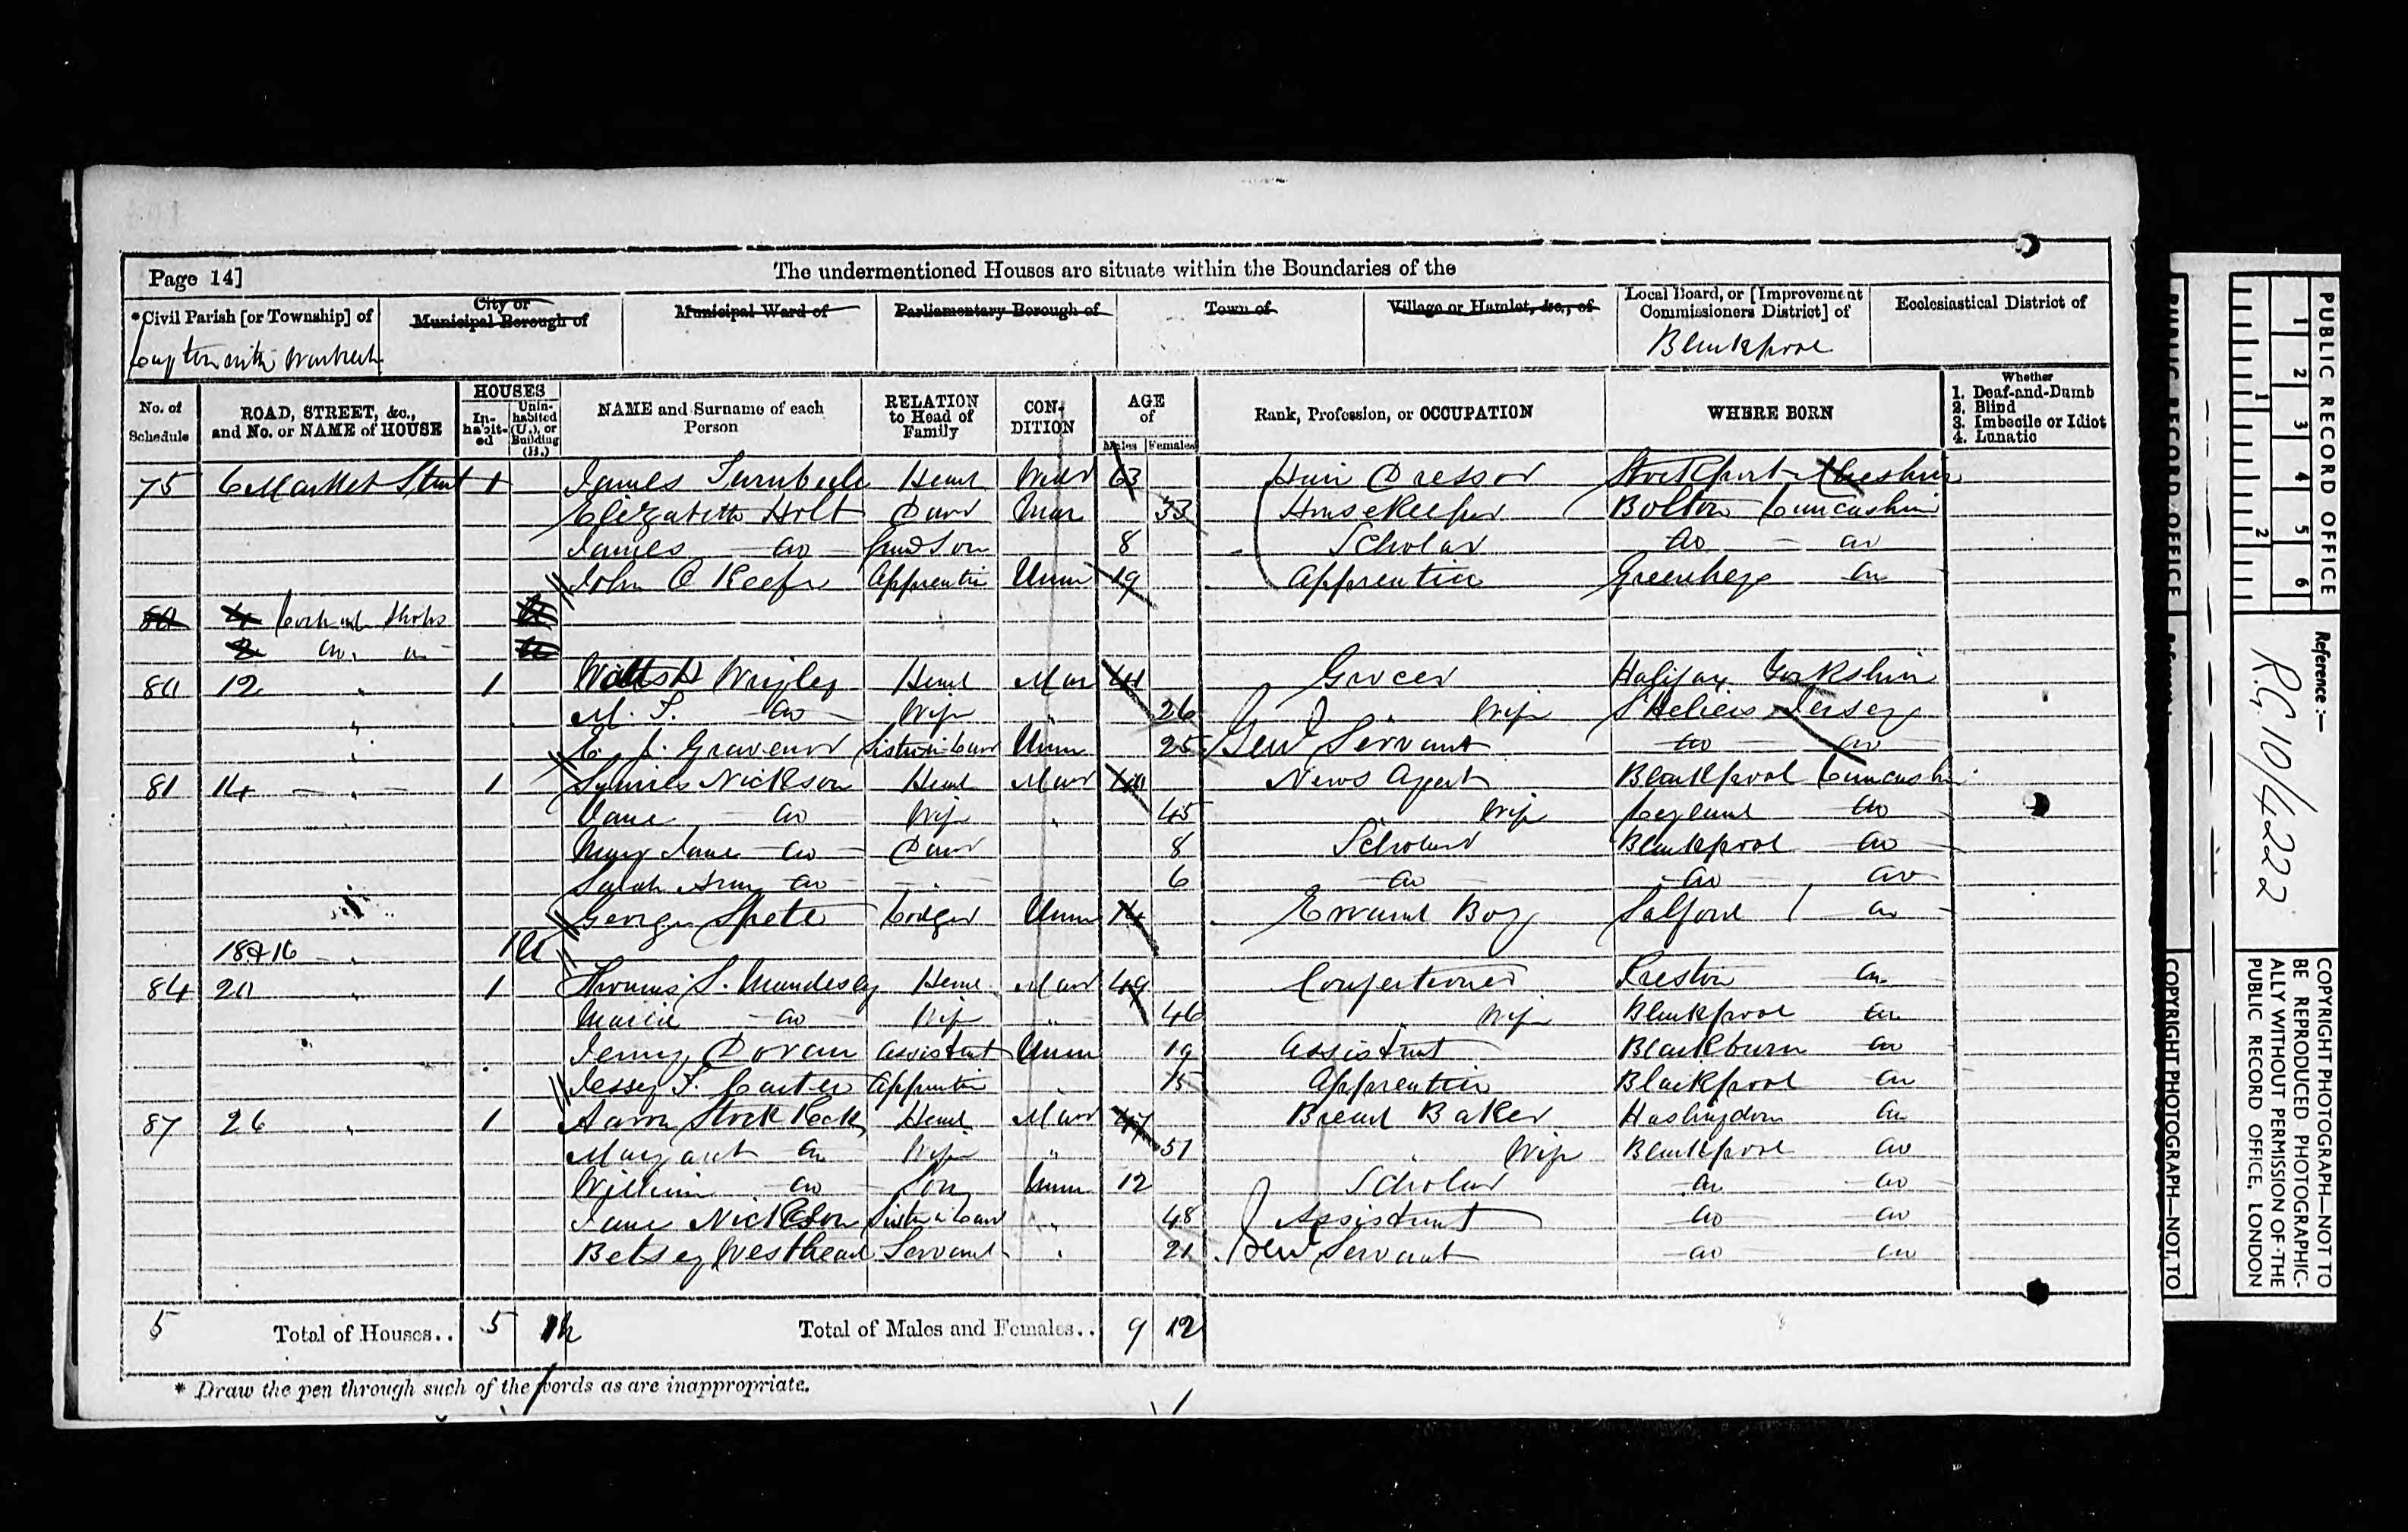 Page 14]
The undermentioned Houses are situate within the Boundaries of the
*Civil Parish [or Township] of
City or Municipal Borough of
Municipal Ward of
Parliamentary Borough of
Town of
Village or Hamlet, &c., of
Local Board, or [Improvement Commissioners District] of
Ecclesiastical District of
Layton with Warbreck
Blackpool
No. of Schedule
ROAD, STREET, &c., and No. or NAME of HOUSE
HOUSES
In-habit-ed
Unin-habited (U.), or Building (B.)
NAME and Surname of each Person
RELATION to Head of Family
CON-DITION
AGE of
Males Females
Rank, Profession, or OCCUPATION
WHERE BORN
Whether
1. Deaf-and-Dumb
2. Blind
3. Imbecile or Idiot
4. Lunatic
75 6 Market Street 1 James Turnbull Head Widr 63 Hair Dresser Stockport Cheshire
Elizabeth Holt Daur Mar 33 Housekeeper Bolton Lancashire
James do Grandson 8 Scholar do do
John O Keefe Apprentice Unm 19 Apprentice Greenheys do
4 Lock up Shops
2 do
80 12 " 1 Watts H Wrigley Head Mar 41 Grocer Halifax Yorkshire
" M. S. do Wife " 26 " Wife St Heliers Jersey
" E. J. Gravenor Sister in Law Unm 25 Genl Servant do do
81 14 " 1 Squires Nickson Head Mar News Agent Blackpool Lancashire
" Jane do Wife " 45 " Wife Leyland do
Mary Jane do Daur 8 Scholar Blackpool do
Sarah Ann do 6 do do do
George Spete Lodger Unm 14 Errand Boy Salford do
18 & 16 " 1 U
84 20 " 1 Thomas S. Mundesley Head Mar 49 Confectioner Preston do
Maria do Wife " 46 " Wife Blackpool do
Jenny Doran Assistant Unm 19 Assistant Blackburn do
Jessey S. Carter Apprentice " 15 Apprentice Blackpool do
87 26 " 1 Aaron Stock Head Mar 47 Bread Baker Haslingdon do
Margaret do Wife " 51 " Wife Blackpool do
William do Son Unm 12 Scholar do do
Jane Nickson Sister in Law " 48 Assistant do do
Betsey Westhead Servant " 21 Genl Servant do do
5 Total of Houses.. 5 Total of Males and Females.. 9 12
* Draw the pen through such of the words as are inappropriate.
PUBLIC RECORD OFFICE
1 2 3 4 5 6
1 2
Reference :—
R.G. 10/4222
COPYRIGHT PHOTOGRAPH—NOT TO
BE REPRODUCED PHOTOGRAPHIC-
ALLY WITHOUT PERMISSION OF THE
PUBLIC RECORD OFFICE, LONDON
PUBLIC RECORD OFFICE
COPYRIGHT PHOTOGRAPH—NOT TO